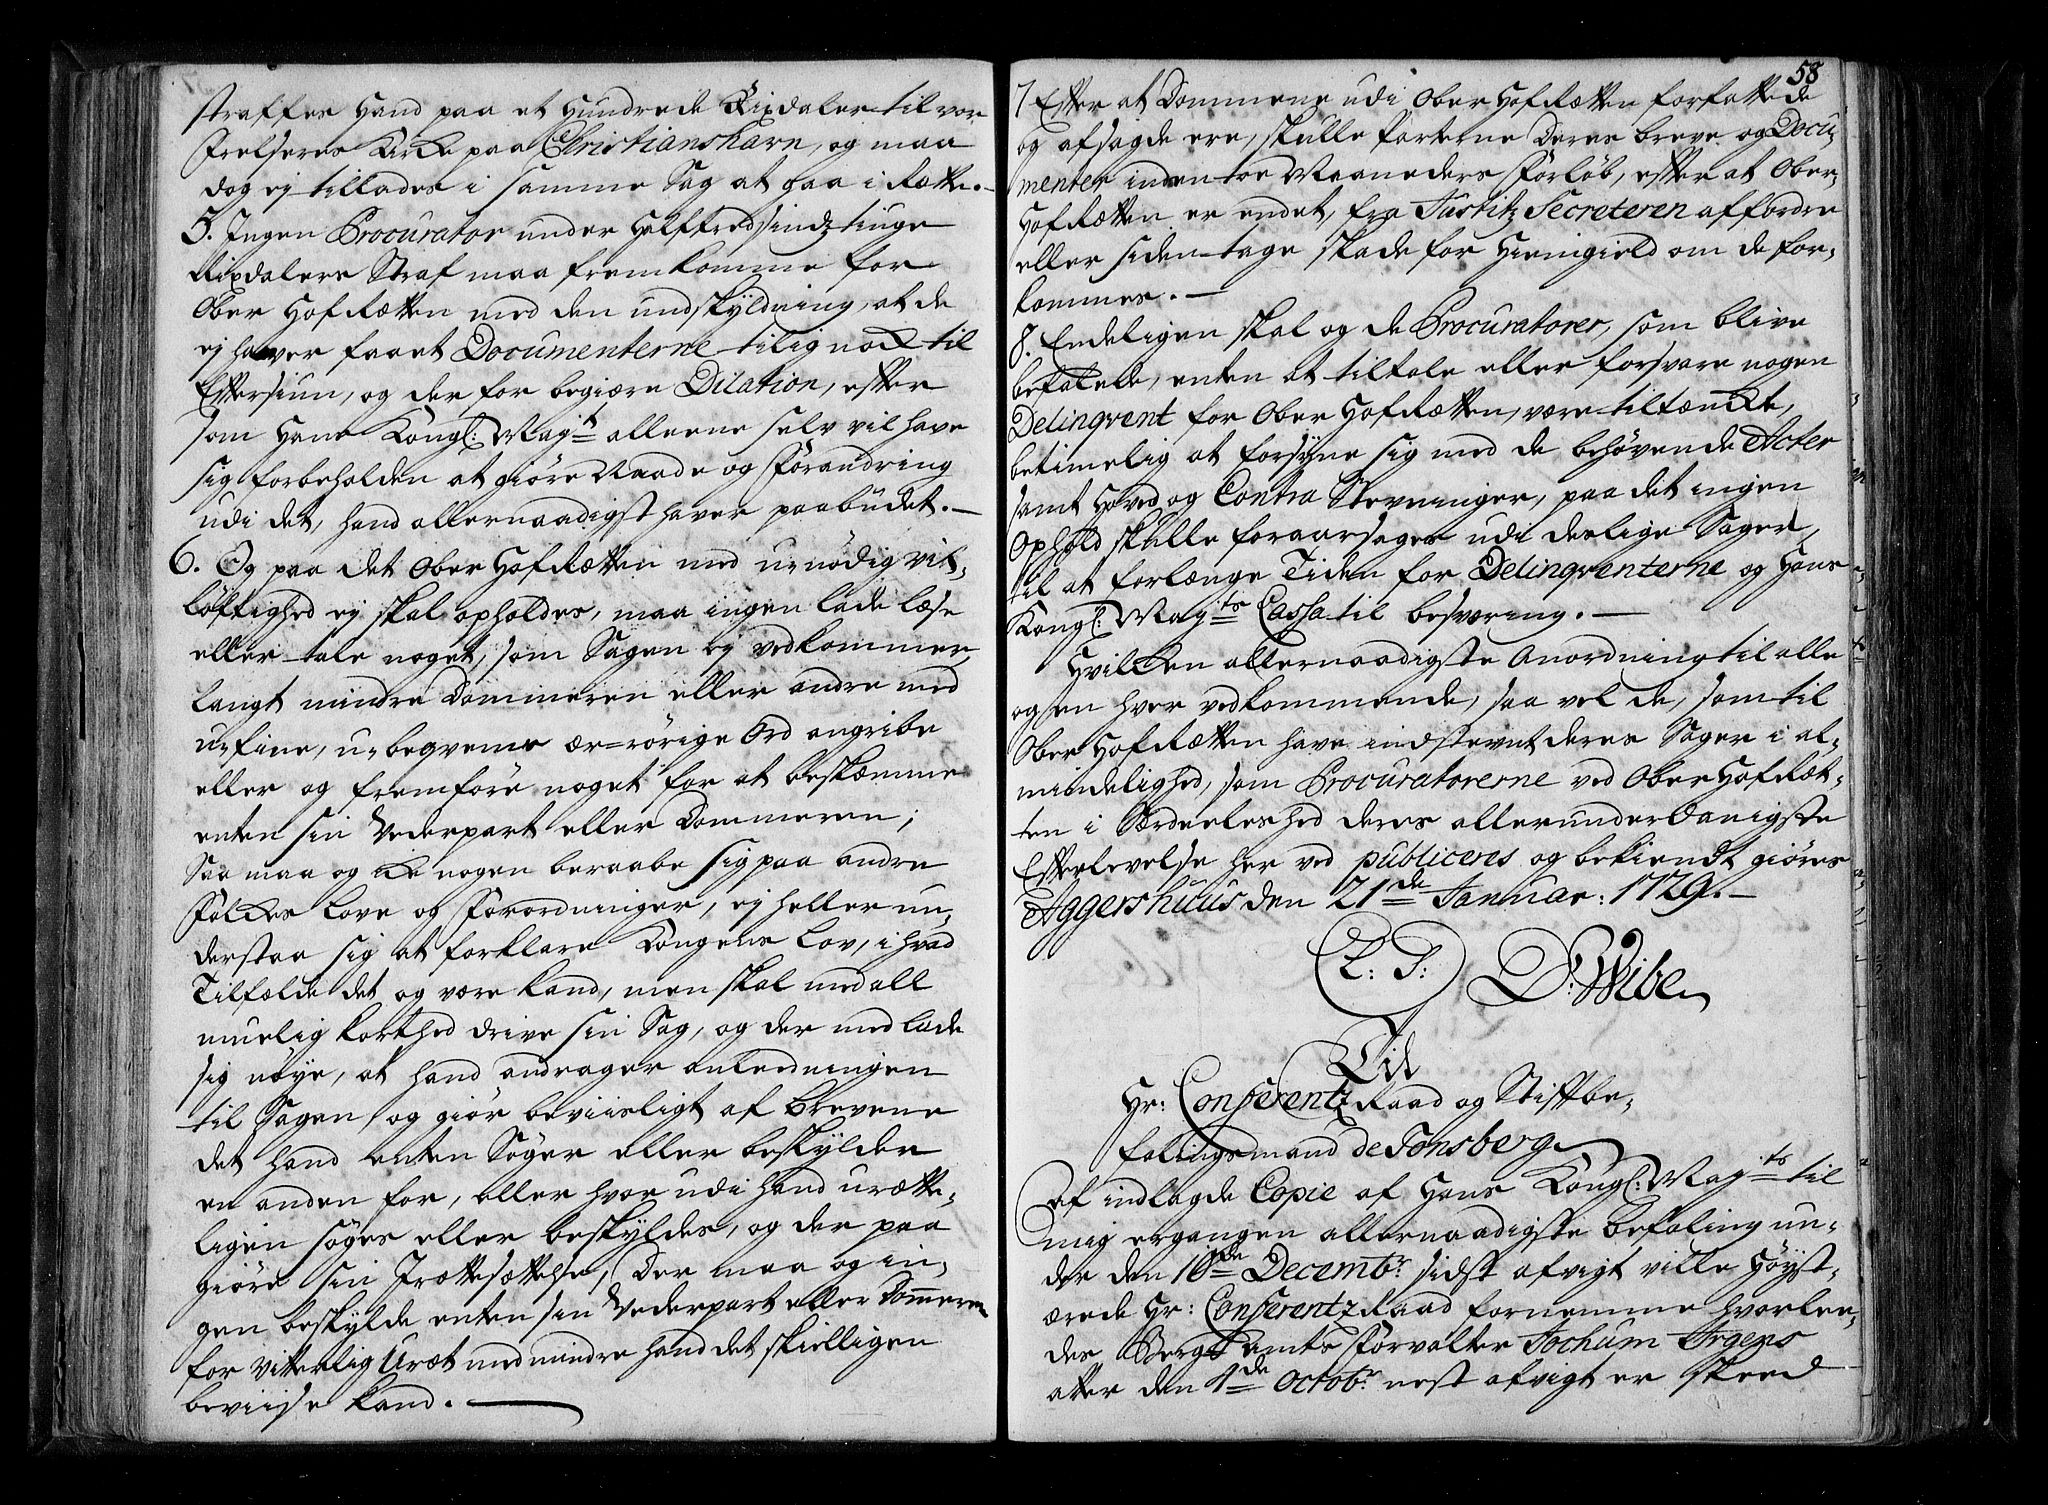 straffes Hand paa et Hundrede Rixdaler til vor
Frelseres Kirke paa Christianshavn, og maa
dog ej tillades i samme Sag at gaa i Rette.
5. Ingen Procurator under Halffredsindztiuge
Rixdalers Straf maa fremkomme for
Ober HofRetten med den undskyldning, at de
ej haver faaet Documenterne tilig nok til
Eftersiun, og der for begiære Dilation, efter
som Hans Kongl: Mayt allene selv vil have
sig forbeholden at giöre Naade og Forandring
udi det, hand allernaadigst haver paabudet.
6. Og paa det Ober HofRetten med u-nödig vit-
löftighed ej skal opholdes, maa ingen lade læse
eller tale noget, som Sagen ej vedkommer,
langt mindre Dommeren eller andre med
u-fine, u-beqvems ær=rörige Ord angribe
eller og fremföre noget for at beskæmme
enten sin Vederpart eller Dommeren;
Saa maa og ikke nogen beraabe sig paa andre
Folkes Love og Forordninger, ej heller un-
derstaa sig at forklare Kongens Lov, i hvad
Tilfælde det og være kand, men skal med all
muelig korthed drive sin Sag, og der med lade
sig nöye, at hand andrager anledningen
til Sagen, og giör beviisligt af Brevene
det hand enten Söger eller beskylder
en anden for, eller hvor udi hand urette-
ligen söges eller beskyldes, og der paa
giöre sin Irettesættelse, Der maa og in-
gen beskylde enten sin Vederpart eller Dommeren
for vitterlig Uræt med mindre hand det skielligen
beviise kand.
58
7 Efter at Dommene udi Ober HofRetten forfattede
og afsagde ere, skulle Parterne deres breve og Docu-
menter inden toe Maaneders Forlöb, efter at Ober-
HofRetten er endet, fra Justitz Secreteren affordre
eller siden tage skade for Hiemgield om de for-
kommes.
8. Endeligen skal og de Procuratorer, som blive
befalede, enten at tiltale eller forsvare nogen
Delinqvent for Ober HofRetten, være tiltænkte,
betimelig at forsyne sig med de behövende Acter
samt Hoved og Contra Stevninger, paa det ingen
Ophold skulle foraarsages udi deslige Sager,
til at forlænge Tiden for Delinqventerne og Hans
Kongl: Mayts Cassa til besværing.
Hvilken allernaadigste Anordning til alle
og en hver vedkommende, saa vel de, som til
Ober HofRetten have indstevnt deres Sager i al-
mindelighed, som Procuratorerne ved Ober HofRet-
ten i Særdeeleshed deres allerunderdanigste
Efterlevelse her ved publiceres og bekiendt giöres
Aggershuus den 21de Januar: 1729.
L: S: D: Wibe
Til
Hr: Conferentz Raad og Stiftbe-
falingsmand de Tonsberg
Af indlagde Copie af Hans Kongl: Mayts til
mig ergangen allernaadigste Befaling un-
der den 10de Decembr: sidst afvigt ville Höyst-
ærede Hr: Conferentz Raad fornemme hvorlee-
des Berg Amts Forvalter Jochum Irgens
atter den 4de Octobr: nest afvigt er skeed